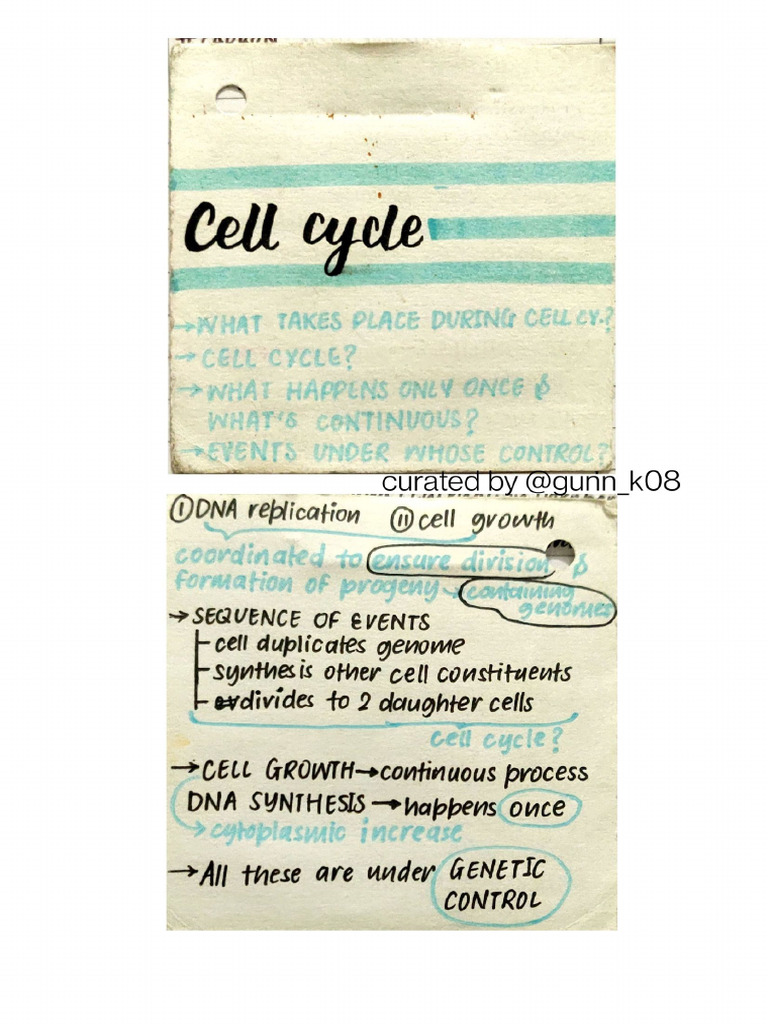 Cell cycle
→WHAT TAKES PLACE DURING CELL CY.?
→CELL CYCLE?
→WHAT HAPPENS ONLY ONCE &
WHAT'S CONTINUOUS?
→EVENTS UNDER WHOSE CONTROL?
curated by @gunn_k08
Ⓘ DNA replication Ⓘⓘ cell growth
coordinated to ensure division &
formation of progeny → containing
genomes
→ SEQUENCE OF EVENTS
- cell duplicates genome
- synthesis other cell constituents
- divides to 2 daughter cells
cell cycle?
→ CELL GROWTH → continuous process
DNA SYNTHESIS → happens once
→ cytoplasmic increase
→ All these are under GENETIC
CONTROL